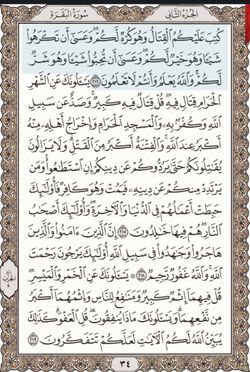 الجزء الثاني سورة البقرة
كتب عليكم القتال وهو كره لكم وعسى أن تكرهوا
شيئا وهو خير لكم وعسى أن تحبوا شيئا وهو شر
لكم والله يعلم وأنتم لا تعلمون ٢١٦ يسئلونك عن الشهر
الحرام قتال فيه قل قتال فيه كبير وصد عن سبيل
الله وكفر به والمسجد الحرام وإخراج أهله منه
أكبر عند الله والفتنة أكبر من القتل ولا يزالون
يقاتلونكم حتى يردوكم عن دينكم إن استطاعوا ومن
يرتدد منكم عن دينه فيمت وهو كافر فأولئك
حبطت أعمالهم في الدنيا والآخرة وأولئك أصحاب
النار هم فيها خالدون ٢١٧ إن الذين ءامنوا والذين
هاجروا وجاهدوا في سبيل الله أولئك يرجون رحمت
الله والله غفور رحيم ٢١٨ يسئلونك عن الخمر والميسر
قل فيهما إثم كبير ومنافع للناس وإثمهما أكبر
من نفعهما ويسئلونك ماذا ينفقون قل العفو كذلك
يبين الله لكم الآيات لعلكم تتفكرون ٢١٩
٣٤